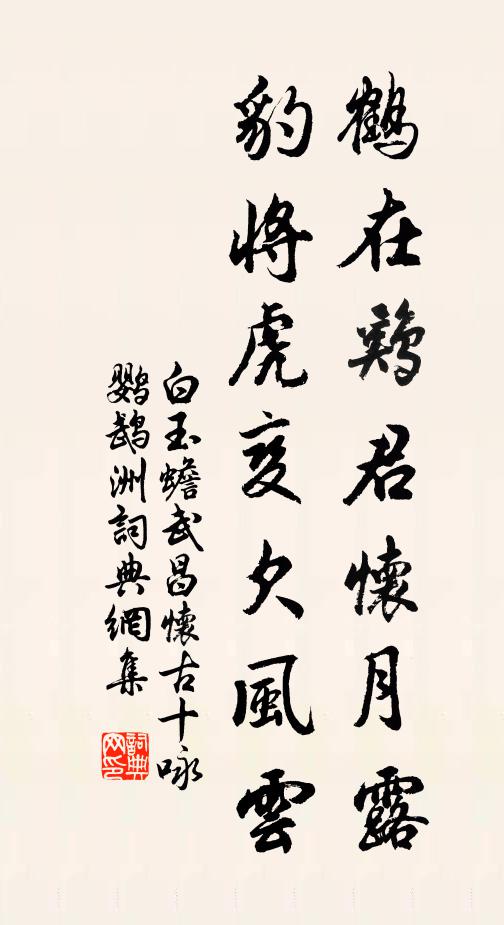 鶴在鷄君懷月露
豹將虎變欠風雲
白玉蟾武昌懷古十咏
鹦鹉洲詞典網集
詞典網印